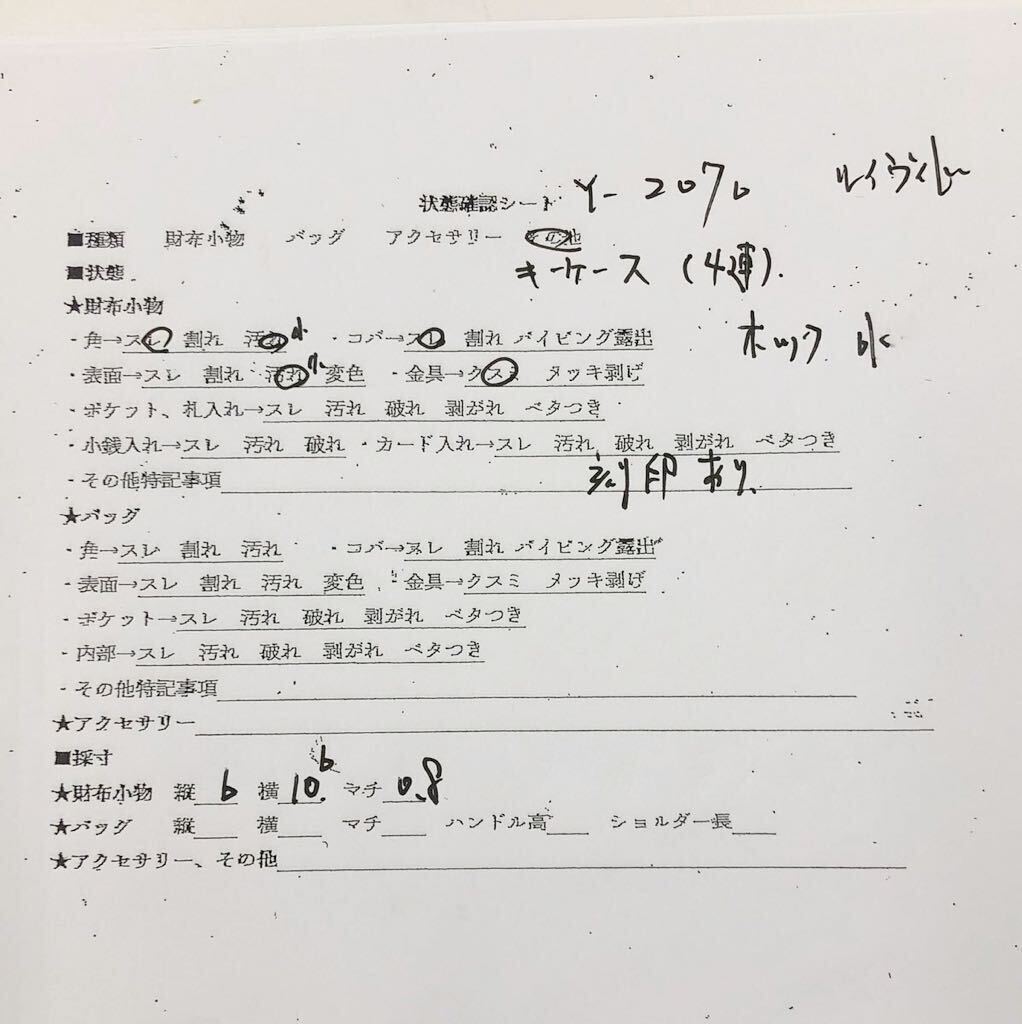 状態確認シート Y-2076 ルイヴィ
■種類 財布小物 バッグ アクセサリー その他
■状態 キーケース (4連).
★財布小物
・角→スレ 割れ 汚れ 小 ・コバ→スレ 割れ パイピング露出 ホック 小
・表面→スレ 割れ 汚れ 小 変色 ・金具→クスミ メッキ剥げ
・ポケット、札入れ→スレ 汚れ 破れ 剥がれ ベタつき
・小銭入れ→スレ 汚れ 破れ ・カード入れ→スレ 汚れ 破れ 剥がれ ベタつき
・その他特記事項 刻印 あり
★バッグ
・角→スレ 割れ 汚れ ・コバ→スレ 割れ パイピング露出
・表面→スレ 割れ 汚れ 変色 ・金具→クスミ メッキ剥げ
・ポケット→スレ 汚れ 破れ 剥がれ ベタつき
・内部→スレ 汚れ 破れ 剥がれ ベタつき
・その他特記事項
★アクセサリー
■採寸
★財布小物 縦 6 横 10.6 マチ 0.8
★バッグ 縦 横 マチ ハンドル高 ショルダー長
★アクセサリー、その他